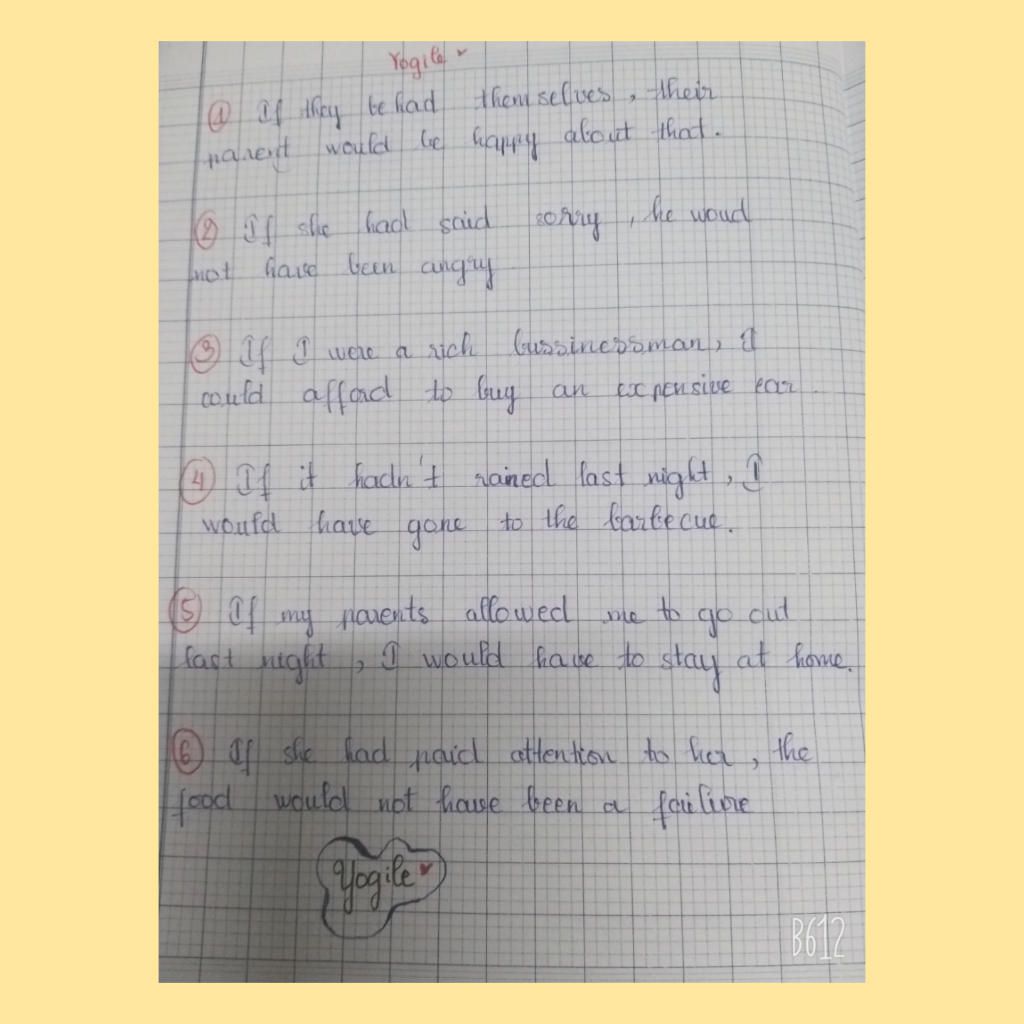 Yogile
① If they behad themselves, their
parent would be happy about that.
② If she had said sorry, he woud
not have been angry
③ If I were a rich bussinessman, I
could afford to buy an expensive car.
④ If it hadn't rained last night, I
would have gone to the barbecue.
⑤ If my parents allowed me to go out
last night, I would have to stay at home.
⑥ If she had paid attention to her, the
food would not have been a failure
Yogile
B612